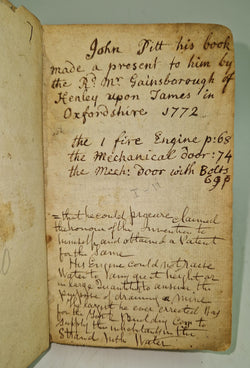 John Pitt his book
made a present to him by
the Rd. Mr Gainsborough of
Henley upon Tames in
Oxfordshire 1772.
the 1 fire Engine p:68
the Mechanical door:74
the Mech: door with Bolts
69 p
that he could procure claimed
the honour of the Invention to
himself, and obtained a Patent
for the Same
His Engine could not raise
Water to any great height or
in large Quantitys to answer the
Purpose of draining a Mine
the largest he ever erected was
for the York Building Comp to
Supply the inhabitants in the
Strand with Water